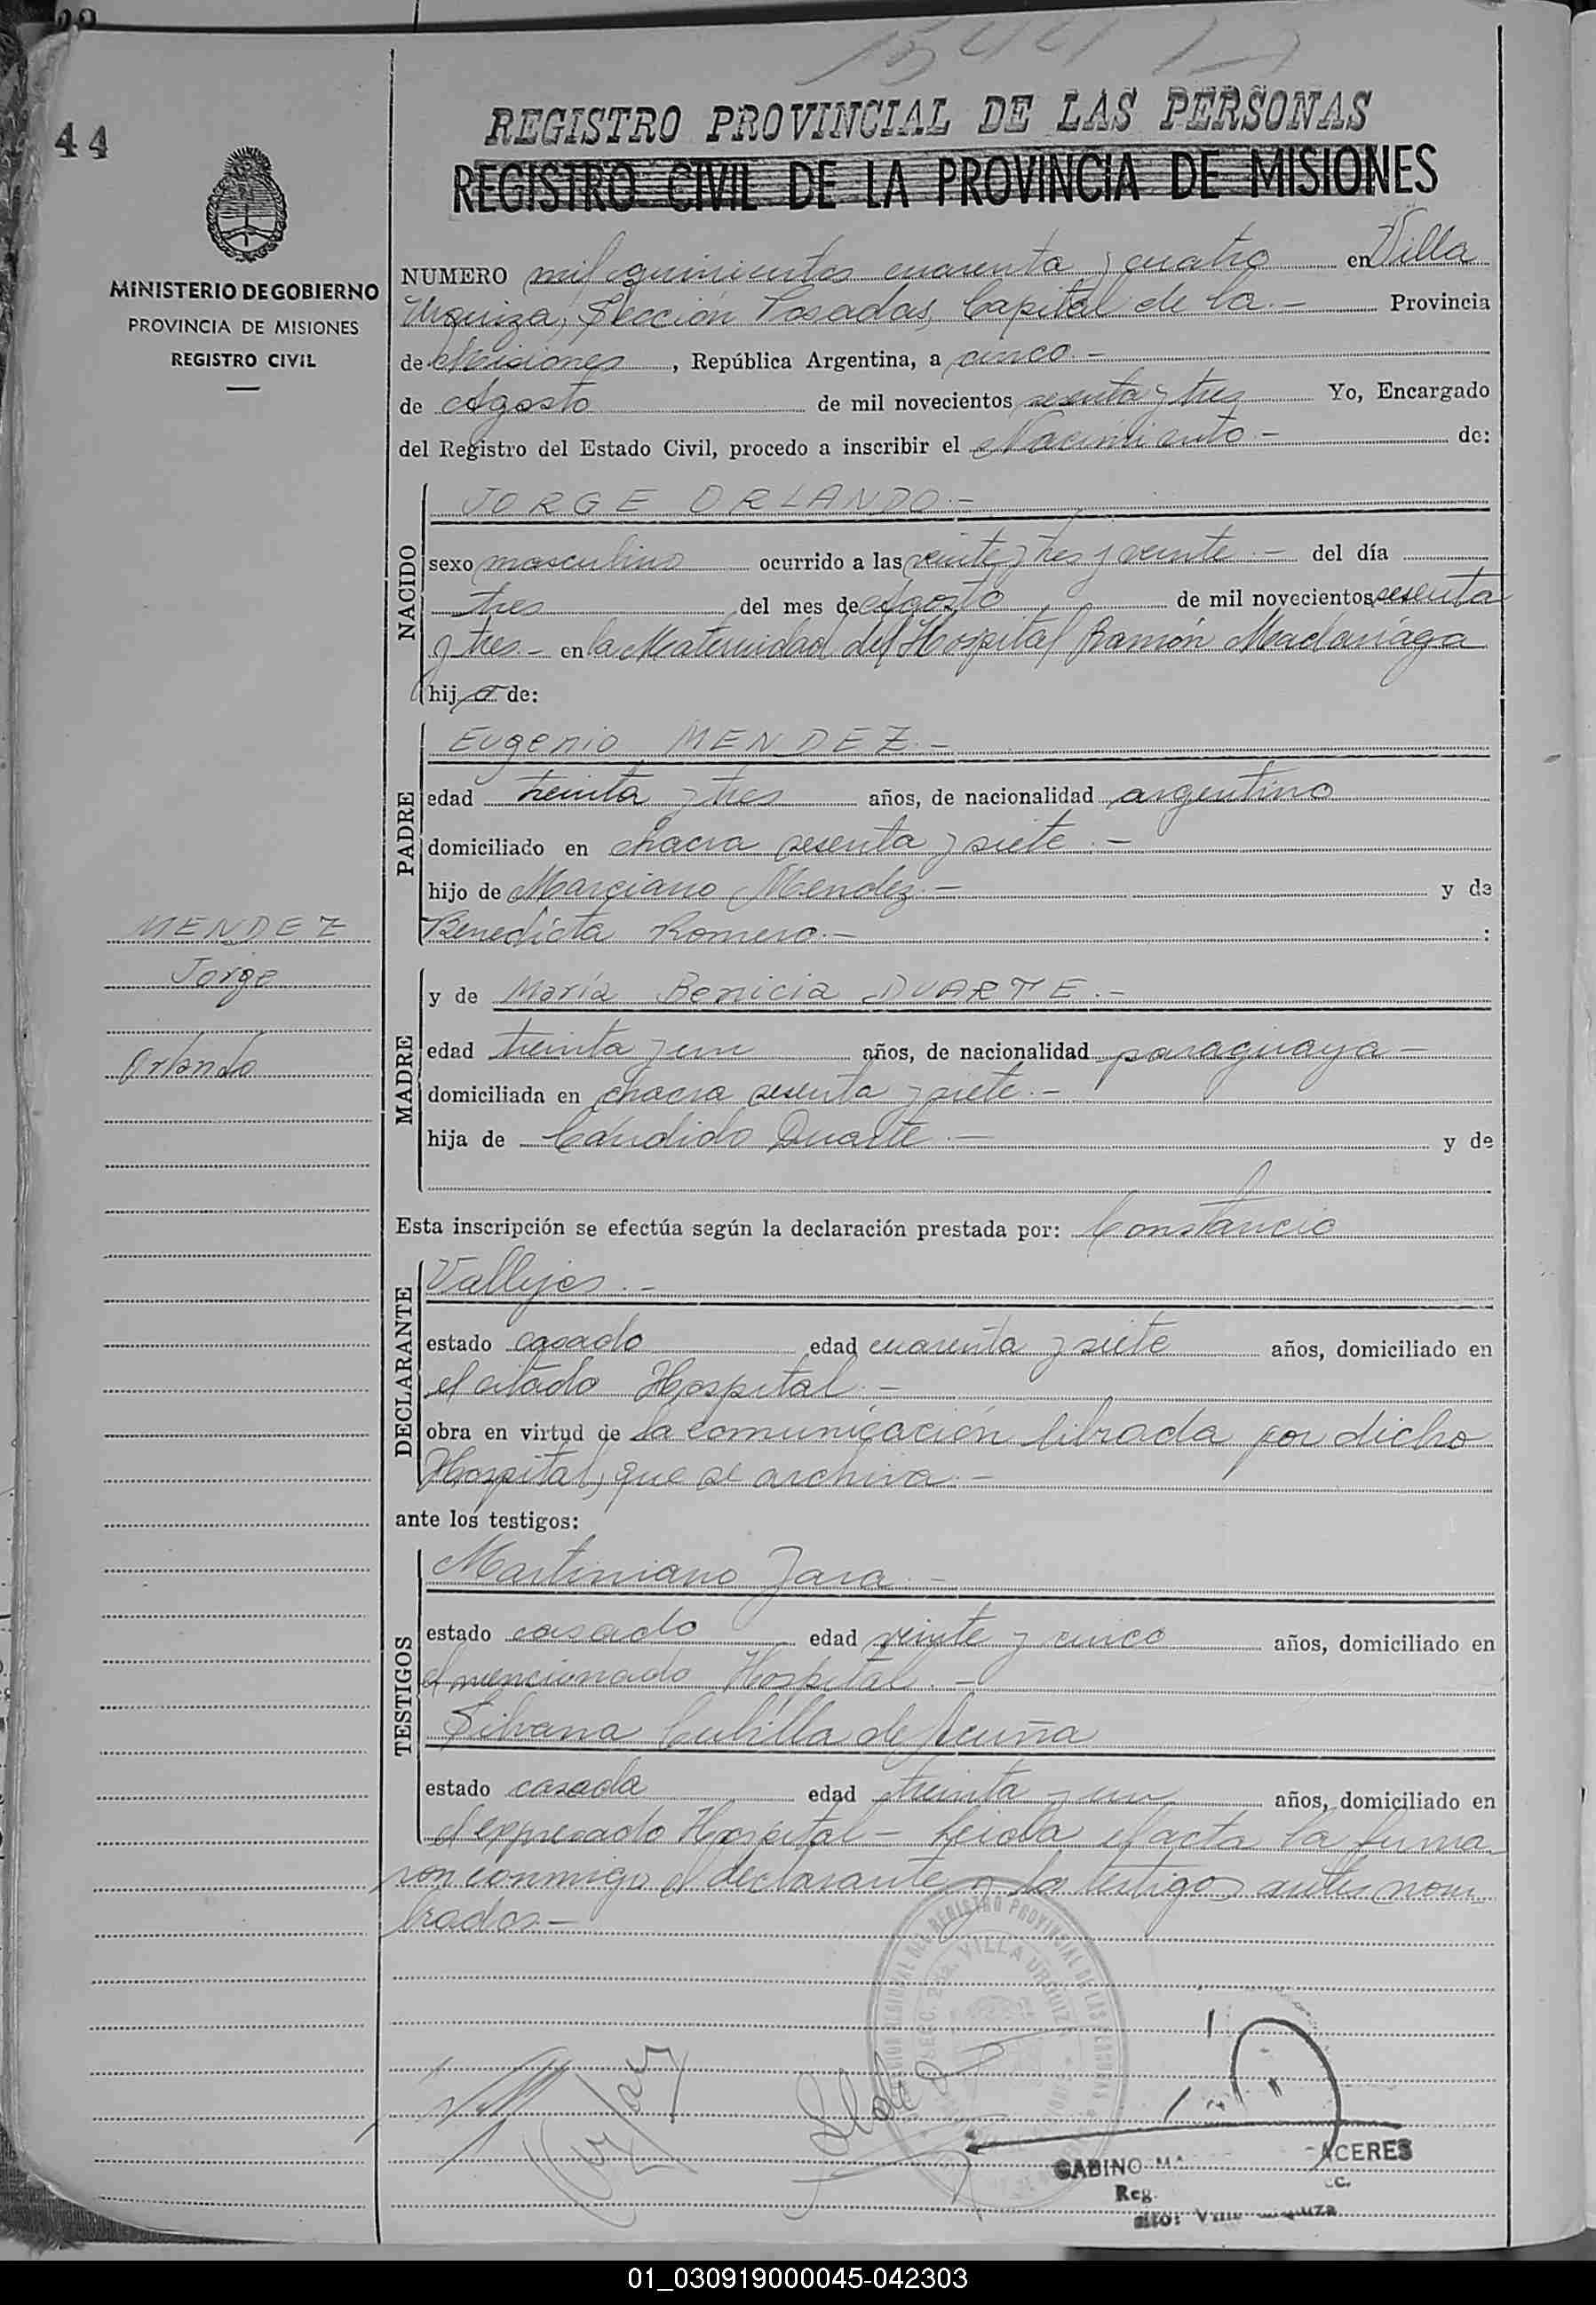 44
1544
REGISTRO PROVINCIAL DE LAS PERSONAS
REGISTRO CIVIL DE LA PROVINCIA DE MISIONES
MINISTERIO DE GOBIERNO
PROVINCIA DE MISIONES
REGISTRO CIVIL
NUMERO mil quinientos cuarenta y cuatro en Villa
Urquiza, Sección Posadas, Capital de la.- Provincia
de Misiones, República Argentina, a cinco.-
de Agosto de mil novecientos sesenta y tres Yo, Encargado
del Registro del Estado Civil, procedo a inscribir el Nacimiento.- de:
NACIDO
JORGE ORLANDO.-
sexo masculino ocurrido a las veinte y tres y veinte.- del día
tres del mes de Agosto de mil novecientos sesenta
y tres.- en la Maternidad del Hospital Ramón Madariaga
hijo de:
PADRE
Eugenio MENDEZ.-
edad treinta y tres años, de nacionalidad argentino
domiciliado en chacra sesenta y siete.-
hijo de Marciano Mendez.- y de
Benedicta Romero.- :
MENDEZ
Jorge
Orlando
MADRE
y de María Benicia DUARTE.-
edad treinta y un años, de nacionalidad paraguaya-
domiciliada en chacra sesenta y siete.-
hija de Cándido Duarte.- y de
Esta inscripción se efectúa según la declaración prestada por: Constancio
DECLARANTE
Vallejos.-
estado casado edad cuarenta y siete años, domiciliado en
el citado Hospital.-
obra en virtud de la comunicación librada por dicho
Hospital, que se archiva.-
ante los testigos:
TESTIGOS
Martiniano Jara.-
estado casado edad veinte y cinco años, domiciliado en
el mencionado Hospital.-
Silvana Cubilla de Acuña
estado casada edad treinta y un años, domiciliado en
el expresado Hospital- Leída el acta la firma
ron conmigo el declarante y los testigos antes nom-
brados.-
REGISTRO PROVINCIAL DE LAS PERSONAS
VILLA URQUIZA
GABINO Mª ACERES
Reg.
01_030919000045-042303